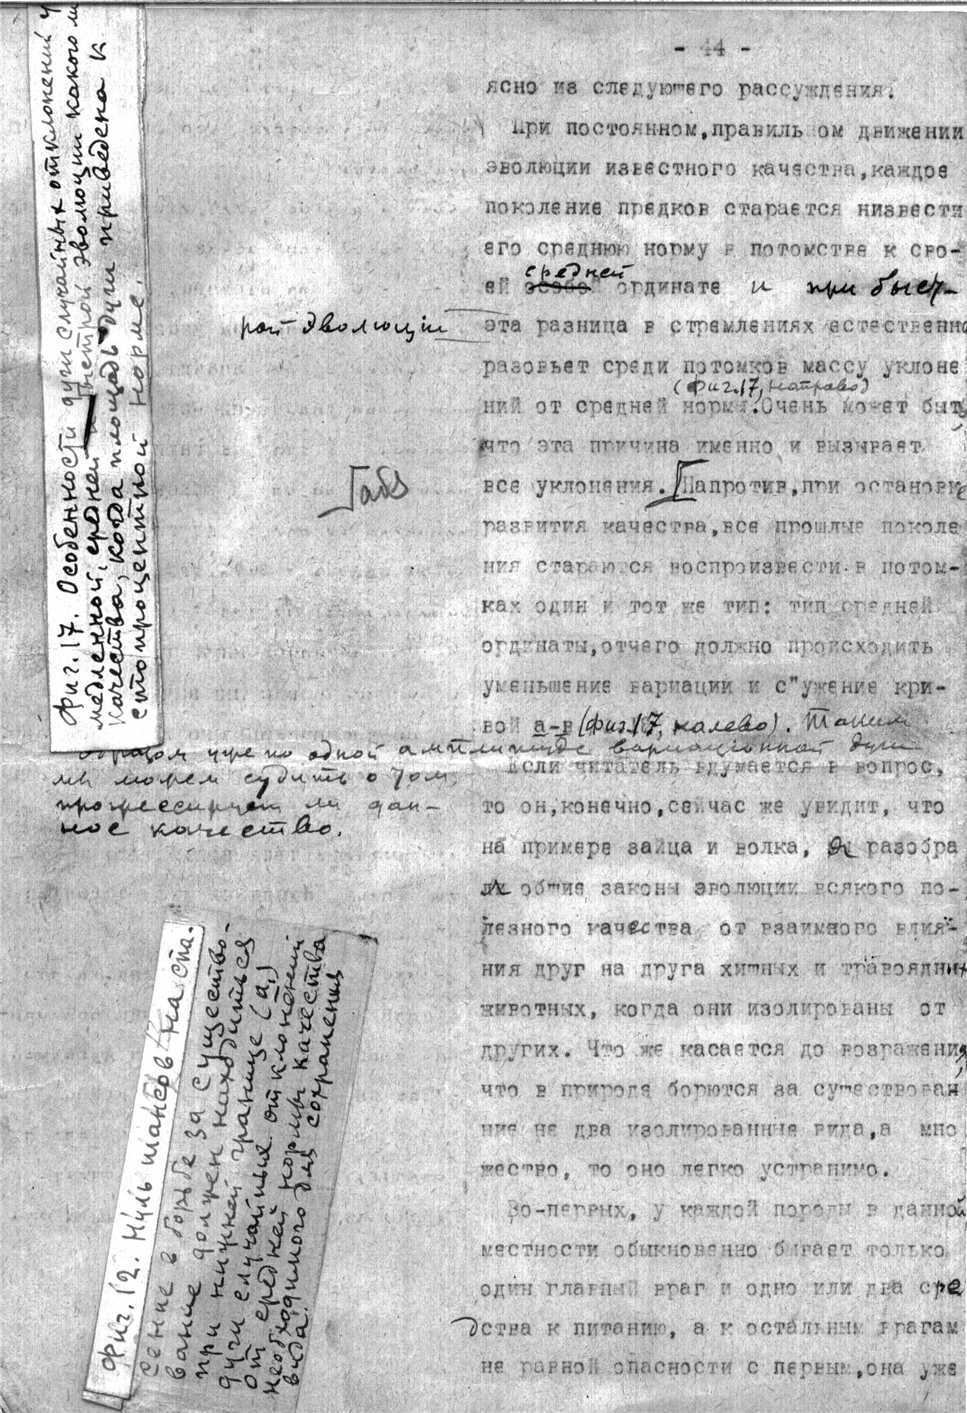 - 44 -
ясно из следующего рассуждения.
При постоянном, правильном движении
эволюции известного качества, каждое
поколение предков старается низвести
его среднюю норму в потомстве к сво-
ей средней ординате и при быст-
рой эволюции
эта разница в стремлениях естественно
разовьет среди потомков массу уклоне
(фиг. 17, направо)
ний от средней нормы. Очень может быть,
что эта причина именно и вызывает
все уклонения. Напротив, при остановке
абз
развития качества, все прошлые поколе
ния стараются воспроизвести в потом-
ках один и тот же тип: тип средней
ординаты, отчего должно происходить
уменьшение вариации и с"ужение кри-
вой а-в (фиг. 17, налево). Таким
образом уже по одной амплитуде вариационной дуги
мы можем судить о том,
прогрессирует ли дан-
ное качество.
Если читатель вдумается в вопрос,
то он, конечно, сейчас же увидит, что
на примере зайца и волка, я разобра
л общие законы эволюции всякого по-
лезного качества от взаимного влия-
ния друг на друга хищных и травоядных
животных, когда они изолированы от
других. Что же касается до возражения,
что в природе борются за существован
ние не два изолированные вида, а мно
жество, то оно легко устранимо.
Во-первых, у каждой породы в данной
местности обыкновенно бывает только
один главный враг и одно или два сре
дства к питанию, а к остальным врагам
не равной опасности с первым, она уже
Фиг. 17. Особенности дуги случайных отклонений
медленной, средней и быстрой эволюции какого
качества, когда площадь дуги приведена к
стопроцентной норме.
Фиг. 12. Нуль шансов на спа-
сение в борьбе за существо-
вание должен находиться
при нижней границе (а₁)
дуги случайных отклонений
от средней нормы качества
необходимого для сохранения
вида.